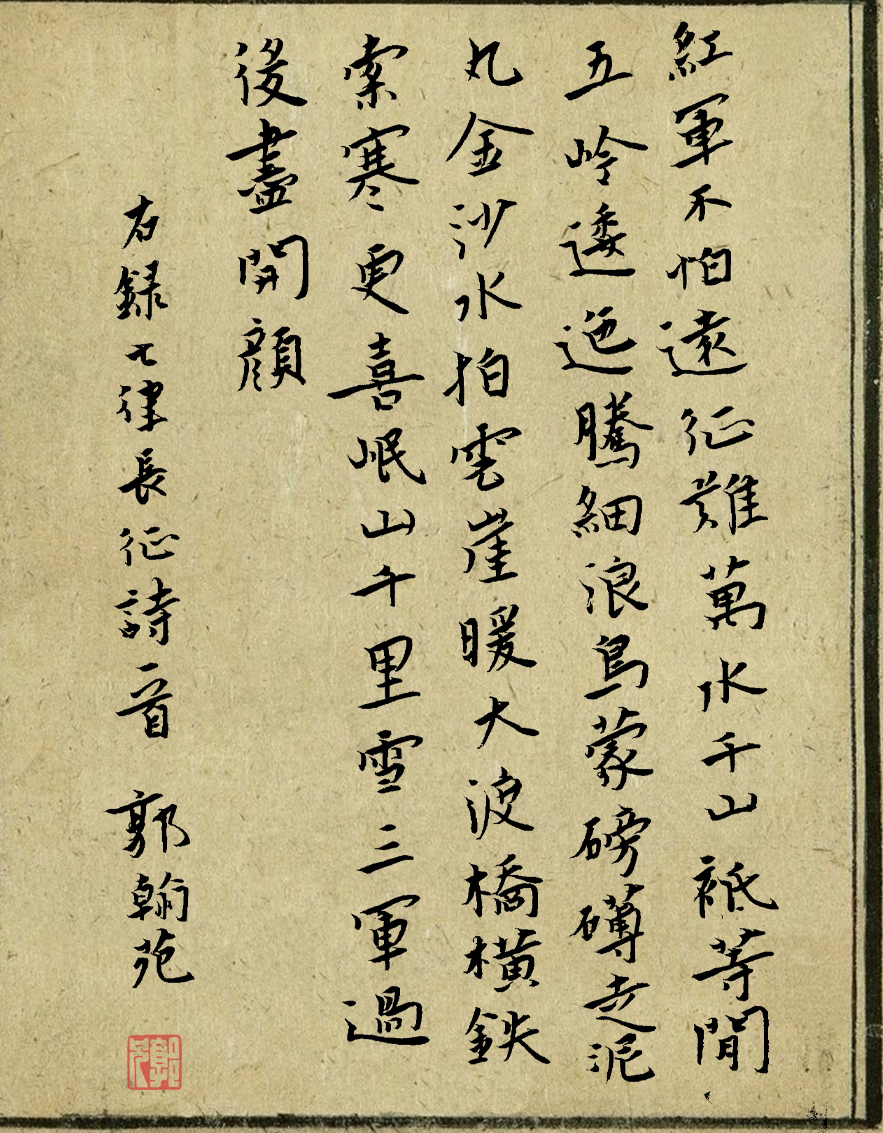 紅軍不怕遠征難萬水千山祗等閒
五岭逶迤騰細浪烏蒙磅礴走泥
丸金沙水拍雲崖暖大渡橋橫鉄
索寒更喜岷山千里雪三軍過
後盡開顔
右録七律長征詩一首 郭翰苑